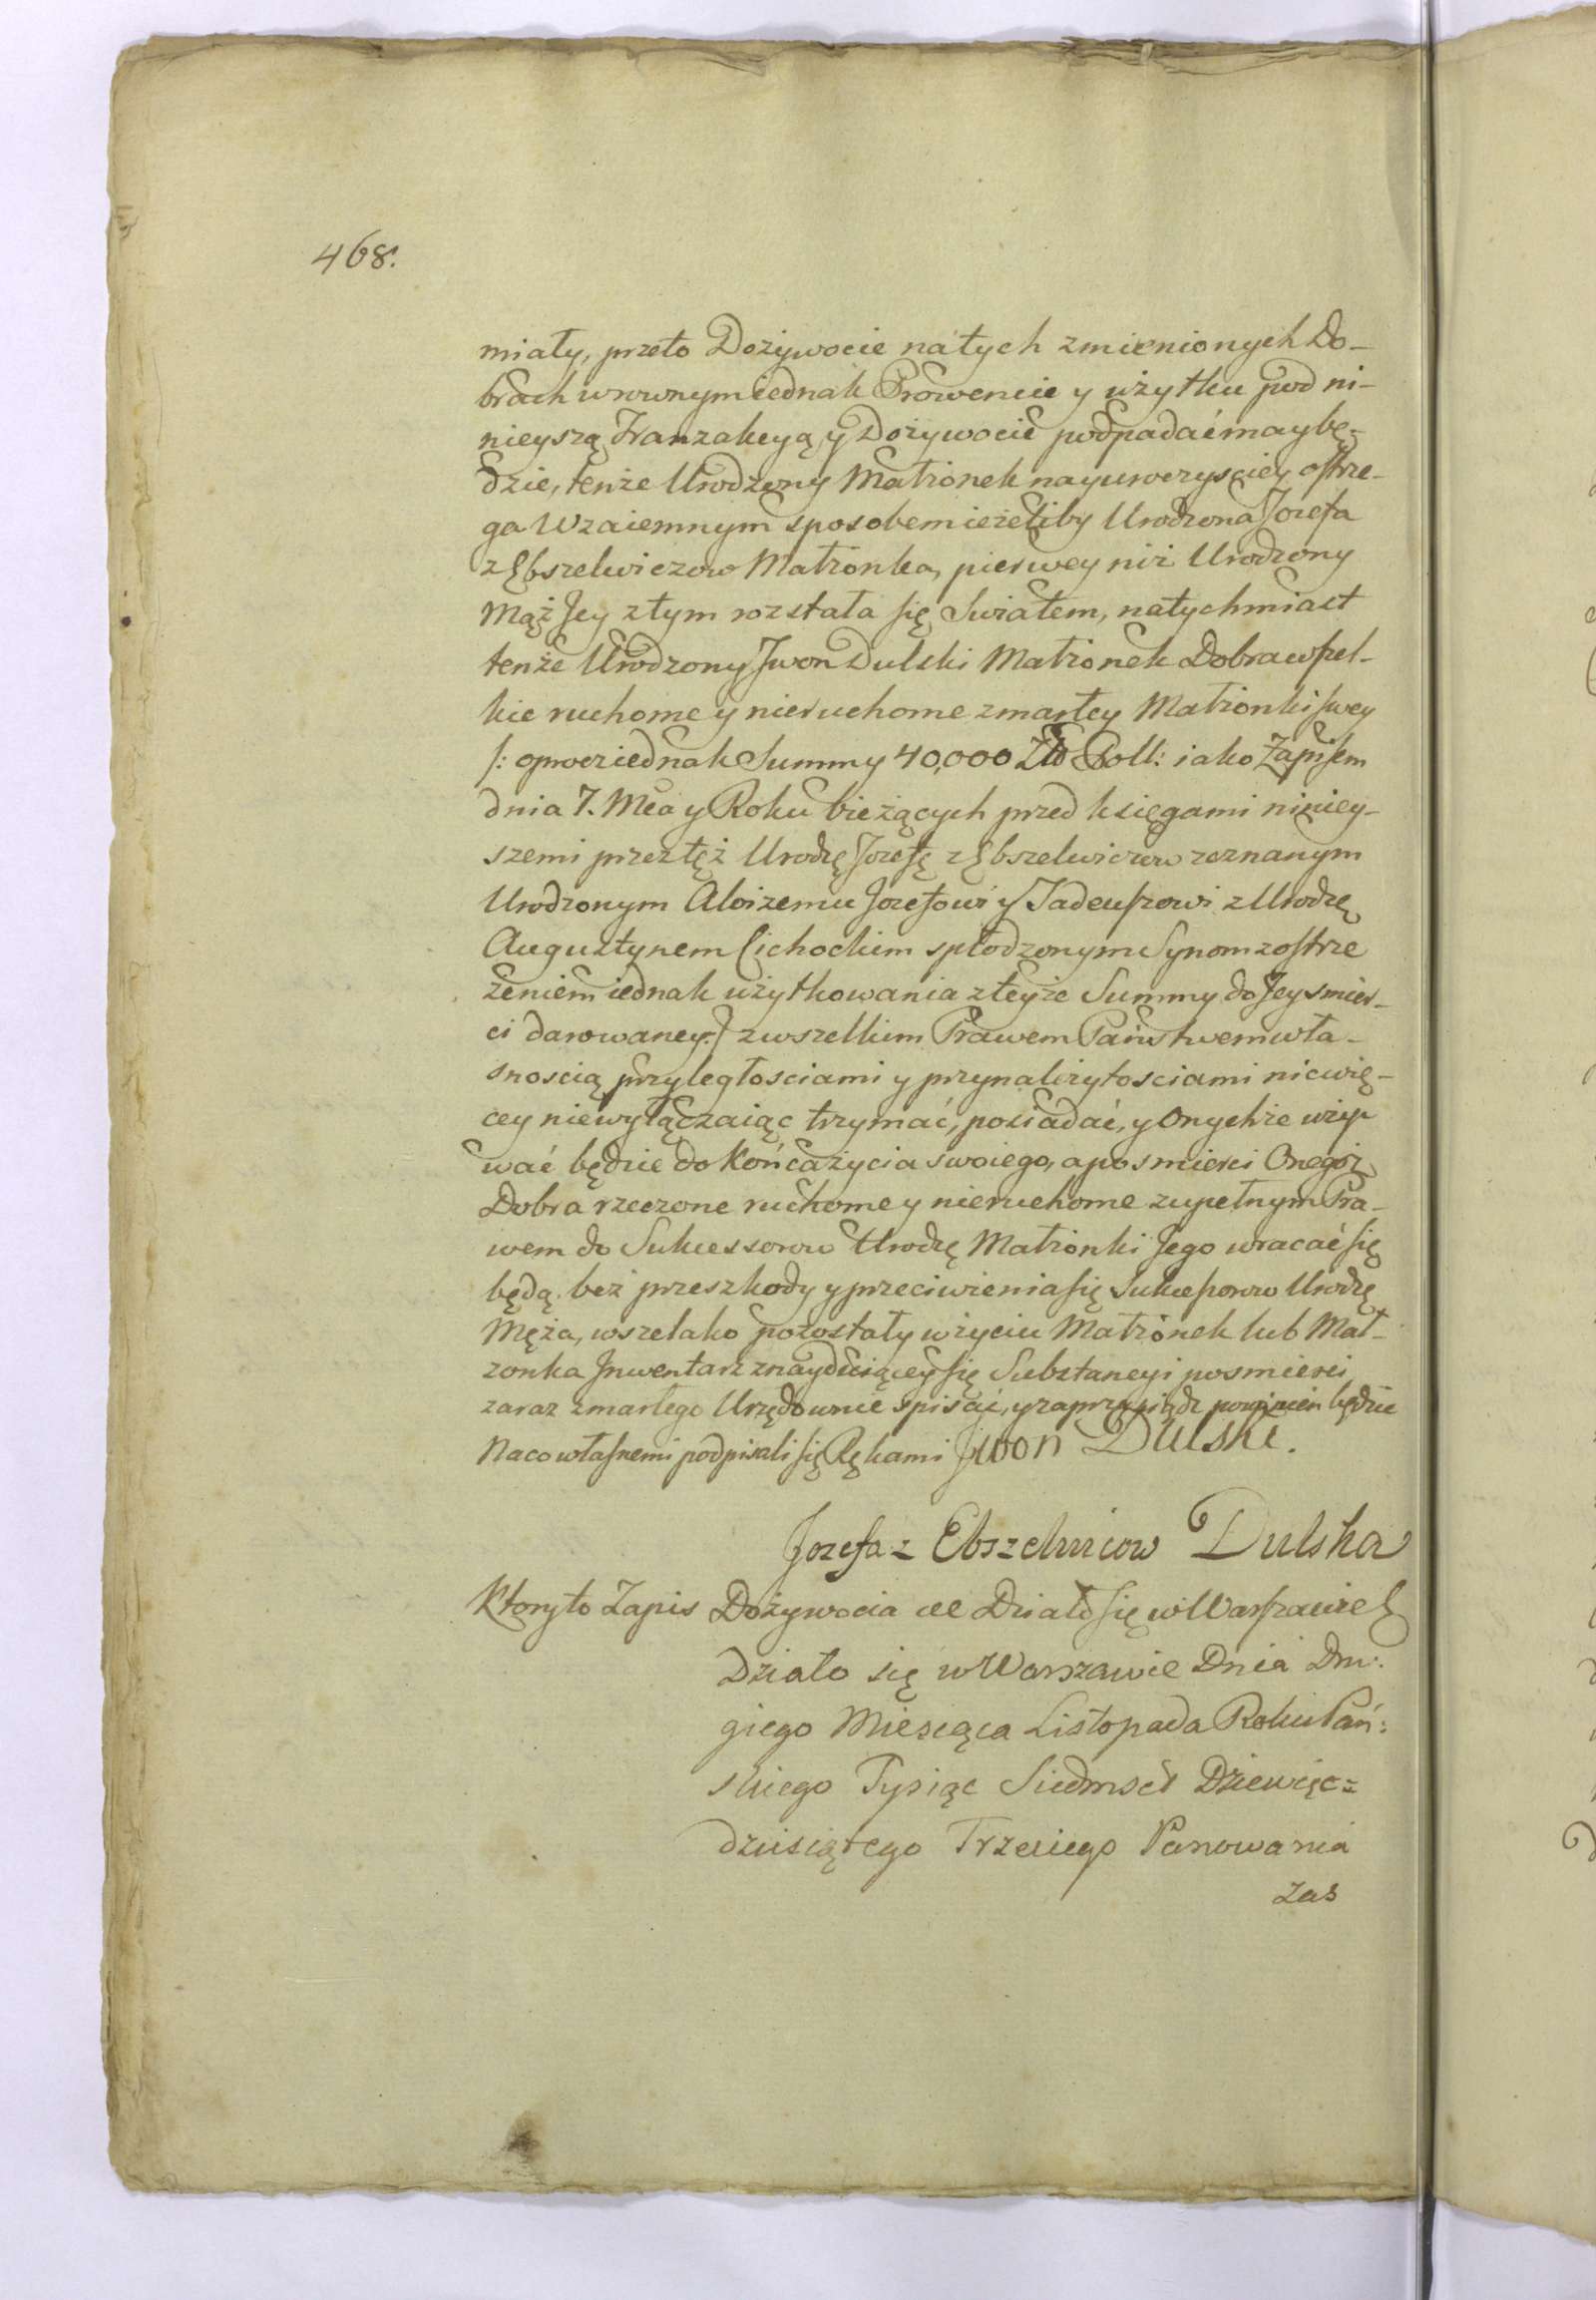 468.
miały, przeto Dożywocie na tych zmienionych Do-
brach w rownym iednak Prowencie y użytku pod ni-
nieyszą Tranzakcyą y Dożywocie podpadać ma y bę-
dzie, tenże Urodzony Małżonek nayuroczyściey ostrze-
ga Wzaiemnym sposobem ieżeliby Urodzona Jozefa
z Ebszelwiczow Małżonka, pierwey niż Urodzony
Mąż Jey z tym rozstała się Swiatem, natychmiast
tenże Urodzony Jwon Dulski Małżonek Dobra wszel-
kie ruchome y nieruchome zmarłey Małżonki swey
/: oprocz iednak Summy 40,000 Zło Poll: iako Zapisem
dnia 7. Mca y Roku bieżących przed księgami niniey-
szemi przez tęż Urodzę Jozefę z Ebszelwiczow zeznanym
Urodzonym Aloizemu Jozefowi y Tadeuszowi z Urodzę
Augusztynem Cichockim spłodzonym Synom z ostrze
żeniem iednak użytkowania z teyże Summy do Jey smier-
ci darowaney :/ z wszelkim Prawem Państwem wła-
snoscią przyległosciami y przynależytosciami nic wię-
cey niewyłączaiąc trzymać, posiadać, y Onychże uży-
wać będzie do Końca życia swoiego, a po smierci Onegoż
Dobra rzeczone ruchome y nieruchome zupełnym Pra-
wem do Sukcessorow Urodzę Małżonki Jego wracać się
będą bez przeszkody y przeciwienia się Sukcessorow Urodzę
Męża, wszelako pozostały w życiu Małżonek lub Mał-
zonka Jnwentarz znayduiącey się Substancyi po smierci
zaraz zmarłego Urzędownie spisać, y zaprzysiądz powinien będzie
Na co własnemi podpisali się Rękami Jwon Dulski.
Jozefa z Ebszelwicow Dulska
Ktory to Zapis Dożywocia ut Działo się w Warszawie
Działo się w Warszawie Dnia Dru:
giego Miesiąca Listopada Roku Pań:
skiego Tysiąc Siedmset Dziewięc=
dziesiątego Trzeciego Panowania
zas